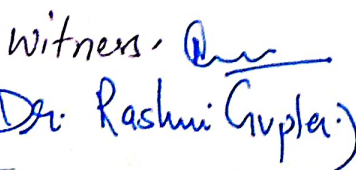 Witness.
Dr. Rashmi Gupta.)